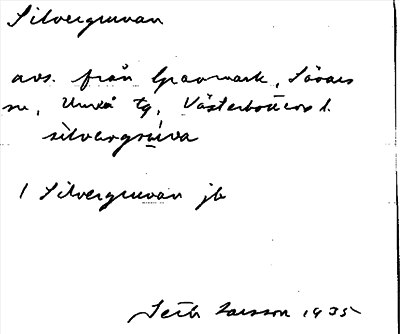 Silvergruvan
avs. från Gravmark, Sävars
sn, Umeå tg, Västerbottens l.
silvərgrúva
1 Silvergruvan jb
Seth Larsson 1935